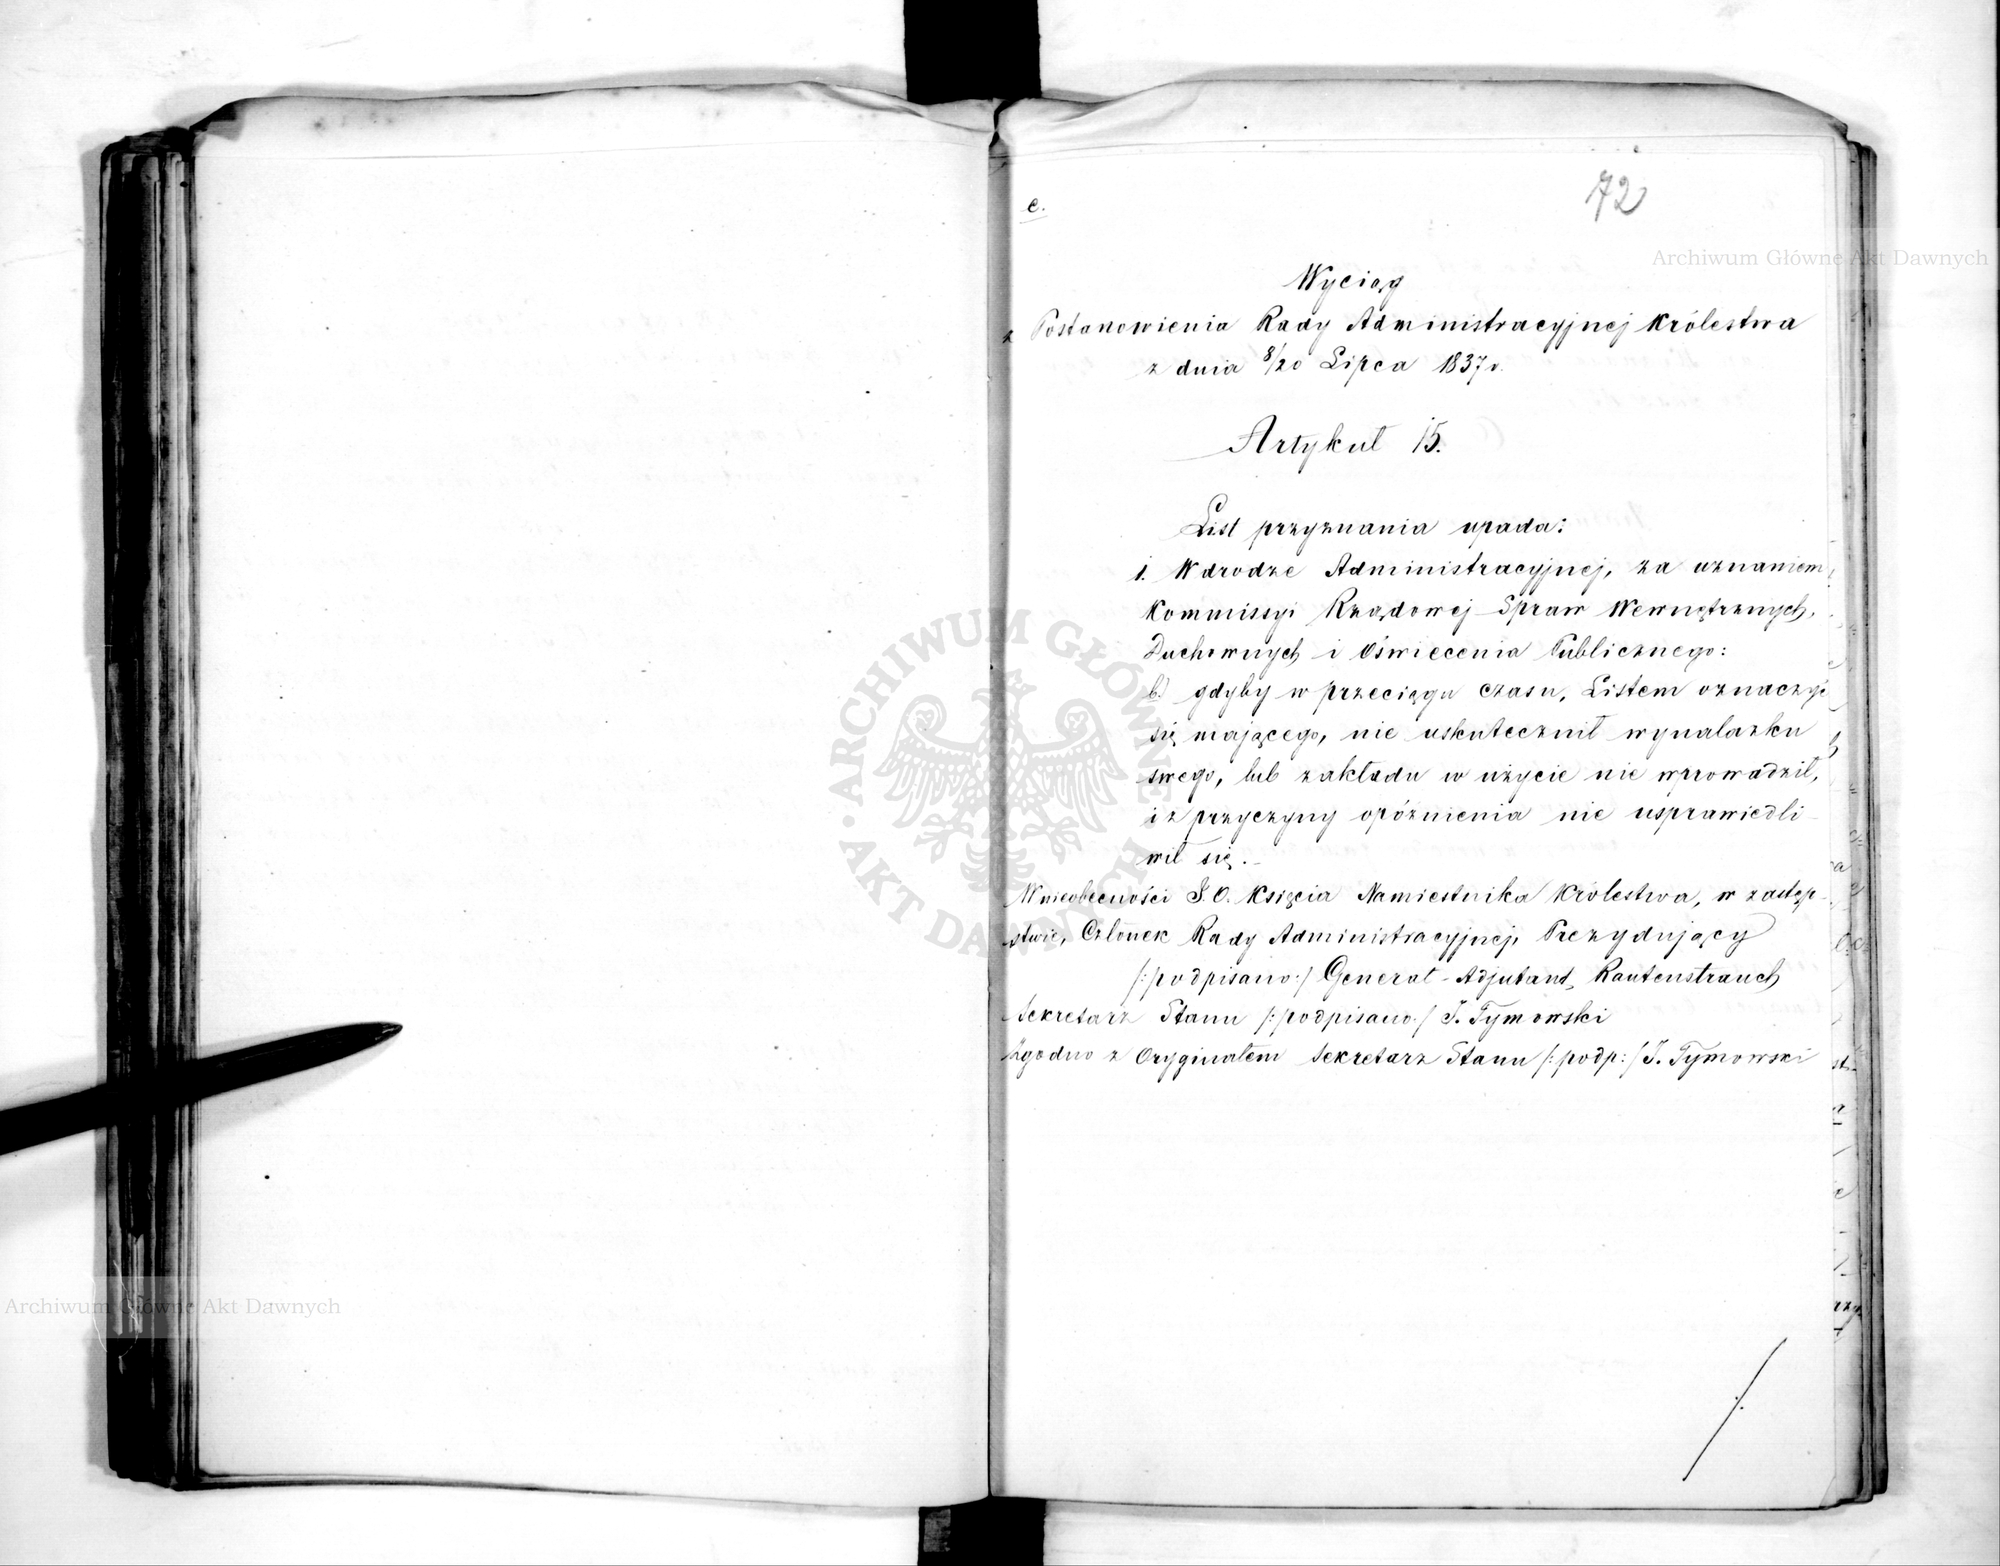 72
c.
Archiwum Główne Akt Dawnych
Wyciąg
z Postanowienia Rady Administracyjnej Królestwa
z dnia 8/20 Lipca 1837 r.
Artykuł 15.
List przyznania upada:
1. W drodze Administracyjnej, za uznaniem
Kommissyi Rządowej Spraw Wewnętrznych,
Duchownych i Oświecenia Publicznego:
b) gdyby w przeciągu czasu, Listem oznaczyć
się mającego, nie uskutecznił wynalazku
swego, lub zakładu w użycie nie wprowadził,
i z przyczyny opóźnienia nie usprawiedli-
wił się.-
W nieobecności J. O. Księcia Namiestnika Królestwa, w zastęp-
stwie, Członek Rady Administracyjnej, Prezydujący
/:podpisano:/ Generał-Adjutant, Rautenstrauch
Sekretarz Stanu /:podpisano:/ J. Tymowski
Zgodno z Oryginałem Sekretarz Stanu /:podp:/ J. Tymowski
ARCHIWUM GŁÓWNE
AKT DAWNYCH
Archiwum Główne Akt Dawnych